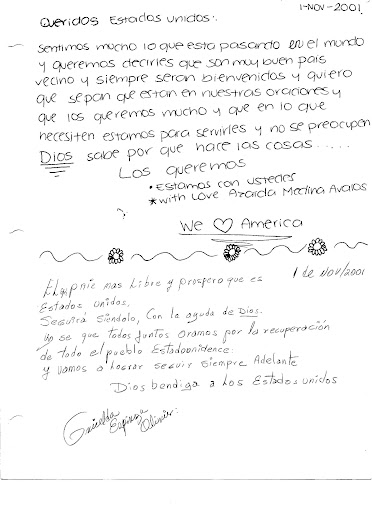 1-NOV-2001.
Queridos Estados unidos:.
sentimos mucho lo que esta pasando en el mundo
y queremos decirles que son muy buen pais
vecino y siempre seran bienvenidos y quiero
que sepan que estan en nuestras oraciones y
que los queremos mucho y que en lo que
necesiten estamos para servirles y no se preocupen
Dios sabe por que hace las cosas.....
Los queremos
• Estamos con ustedes
* with Love Medina Avalos
We ♡ America
1 de NOV/2001
El mas Libre y prospero que es
Estados unidos.
Seguirá Siéndolo, Con la ayuda de Dios.
se que todos juntos oramos por la recuperación
de todo el pueblo Estadounidence.
y vamos a lograr seguir siempre Adelante
Dios bendiga a Los Estados unidos
Griselda
Espinoza